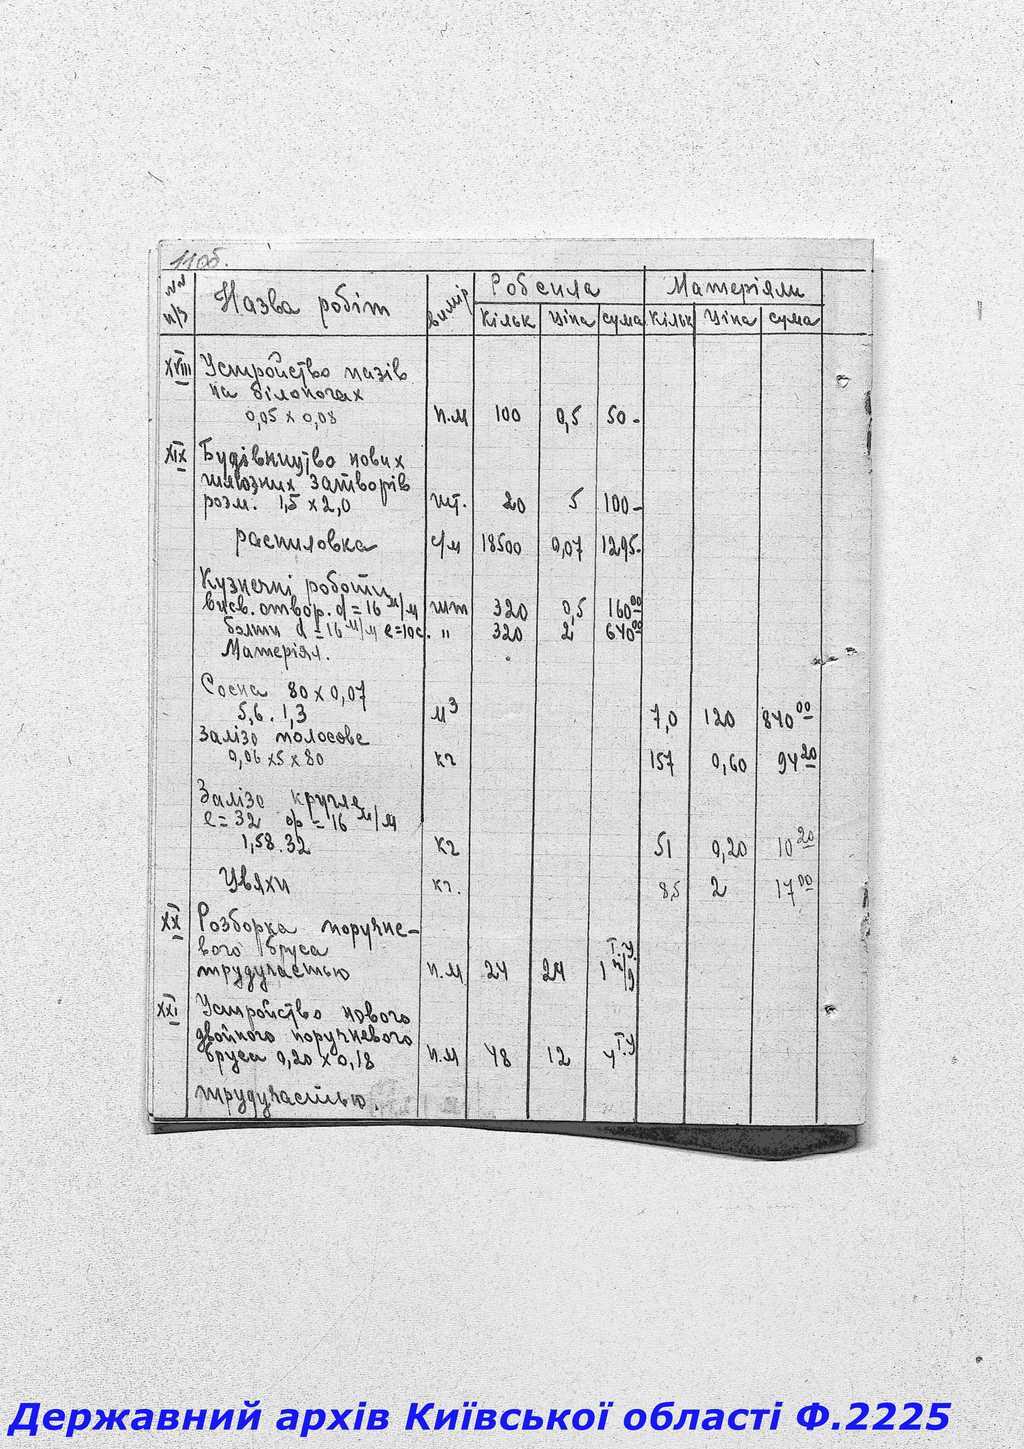 11об.
Робсила Матеріяли
№№ п/п Назва робіт вимір Кільк Ціна сума Кільк Ціна сума
XVIII Устройство пазів
на білоногах
0,05 x 0,08 п.м 100 0,5 50-
XIX Будівництво нових
шлюзних затворів
розм. 1,5 x 2,0 шт. 20 5 100-
распиловка с/м 18500 0,07 1295-
Кузнечні роботи
висв. отвор. d = 16 м/м шт 320 0,5 160 00
болти d = 16 м/м l = 10с. " 320 2 640 00
Матеріял.
Сосна 80 x 0,07
5,6 . 1,3 м3 7,0 120 840 00
Залізо полосове
0,06 x 5 x 80 кг 157 0,60 94 20
Залізо кругле
l = 32 ф = 16 м/м
1,58 . 32 кг 51 0,20 10 20
Цвяхи кг. 8,5 2 17 00
XX Розборка поручне-
вого бруса Т.У.
трудучастью п.м 24 24 1 п/д
XXI Устройство нового
двойного поручневого
бруса 0,20 x 0,18 п.м 48 12 4 Т.У
трудучастью.
Державний архів Київської області Ф.2225